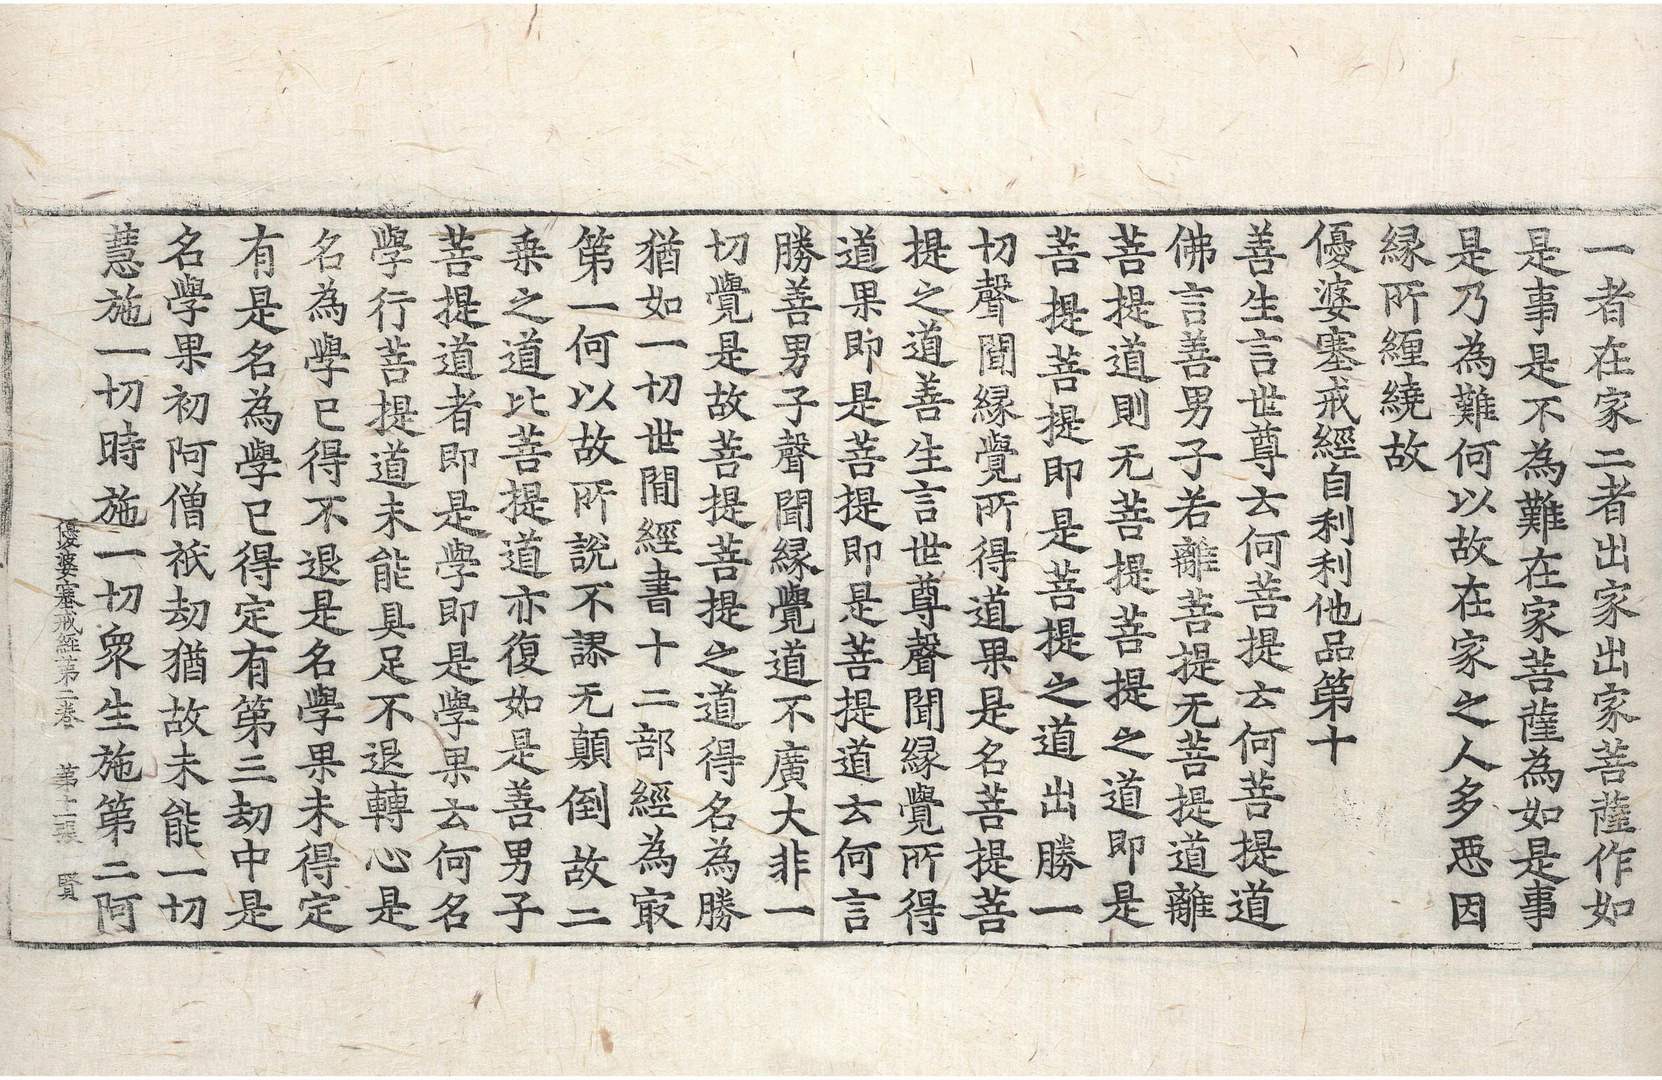 一者在家二者出家出家菩薩作如
是事是不為難在家菩薩為如是事
是乃為難何以故在家之人多惡因
緣所纏繞故
優婆塞戒經自利利他品第十
善生言世尊云何菩提云何菩提道
佛言善男子若離菩提无菩提道離
菩提道則无菩提菩提之道即是
菩提菩提即是菩提之道出勝一
切聲聞緣覺所得道果是名菩提菩
提之道善生言世尊聲聞緣覺所得
道果即是菩提即是菩提道云何言
勝善男子聲聞緣覺道不廣大非一
切覺是故菩提菩提之道得名為勝
猶如一切世間經書十二部經為㝡
第一何以故所說不謬无顛倒故二
乘之道比菩提道亦復如是善男子
菩提道者即是學即是學果云何名
學行菩提道未能具足不退轉心是
名為學已得不退是名學果未得定
有是名為學已得定有第三劫中是
名學果初阿僧祇劫猶故未能一切
慧施一切時施一切衆生施第二阿
優婆塞戒經第二卷　第十二張　賢